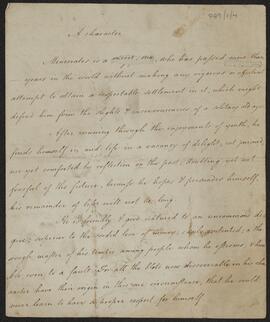 A character
Menecrates is a man, who has passed more than
years in the world without making any vigorous or effectual
attempt to attain a respectable settlement in it, which might
defend him from the slights & inconveniences of a solitary old age.
After running through the enjoyments of youth, he
finds himself in mid life in a vacancy of delight, yet
yet comforted by reflection on the past. trembling yet not
fearful of the future, because he hopes & persuades himself,
his remainder of life will not be long.
He is friendly & good natured to an uncommon de
gree; superior to the sordid love of money; 
master of his among people whom he esteems, whom
he loves, to a fault. For all the blots now discoverable in his cha
racter have their origin in this one circumstance, that he could
never learn to have a proper respect for himself.